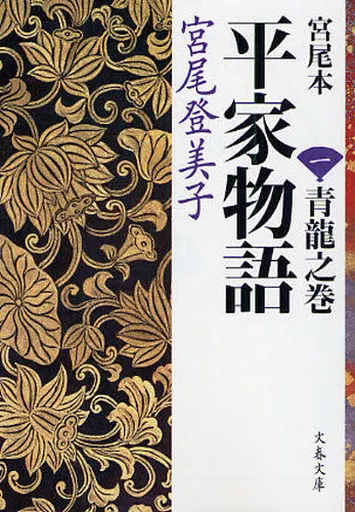 宮尾本
平家物語
一
青龍之巻
宮尾登美子
文春文庫